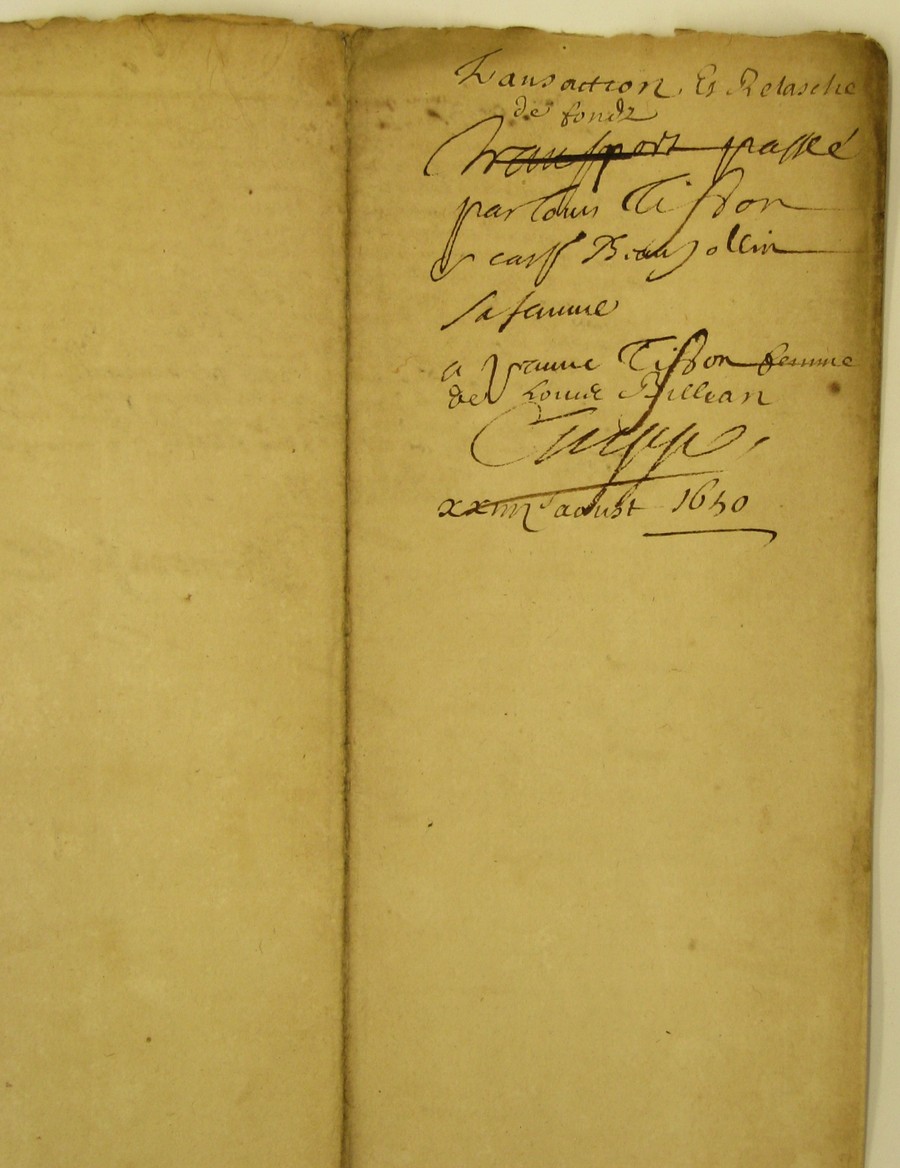 Transaction Et Relasche
de fondz
Transport passé
par Louis Tisson
& carh Beausollin
sa femme
a Jeanne Tisson femme
de Louis Billean
xxiiii aoust 1650